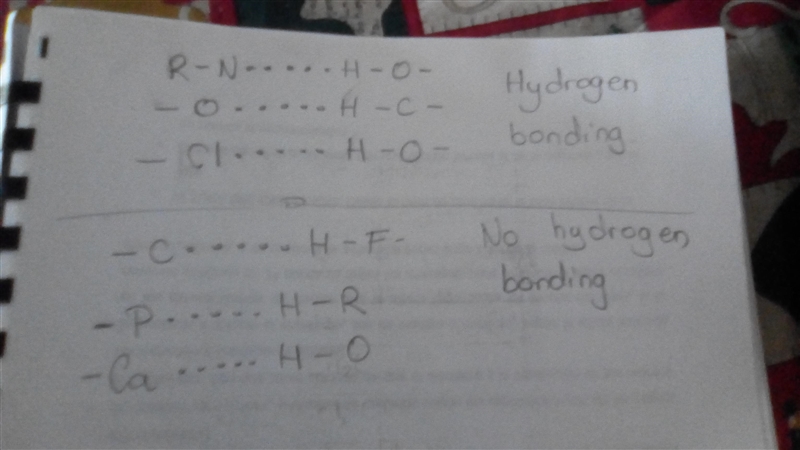 R-N.....H-O-
Hydrogen
-O......H-C-
bonding
-Cl......H-O-
-C......H-F-
No hydrogen
bonding
-P......H-R
-Ca.....H-O